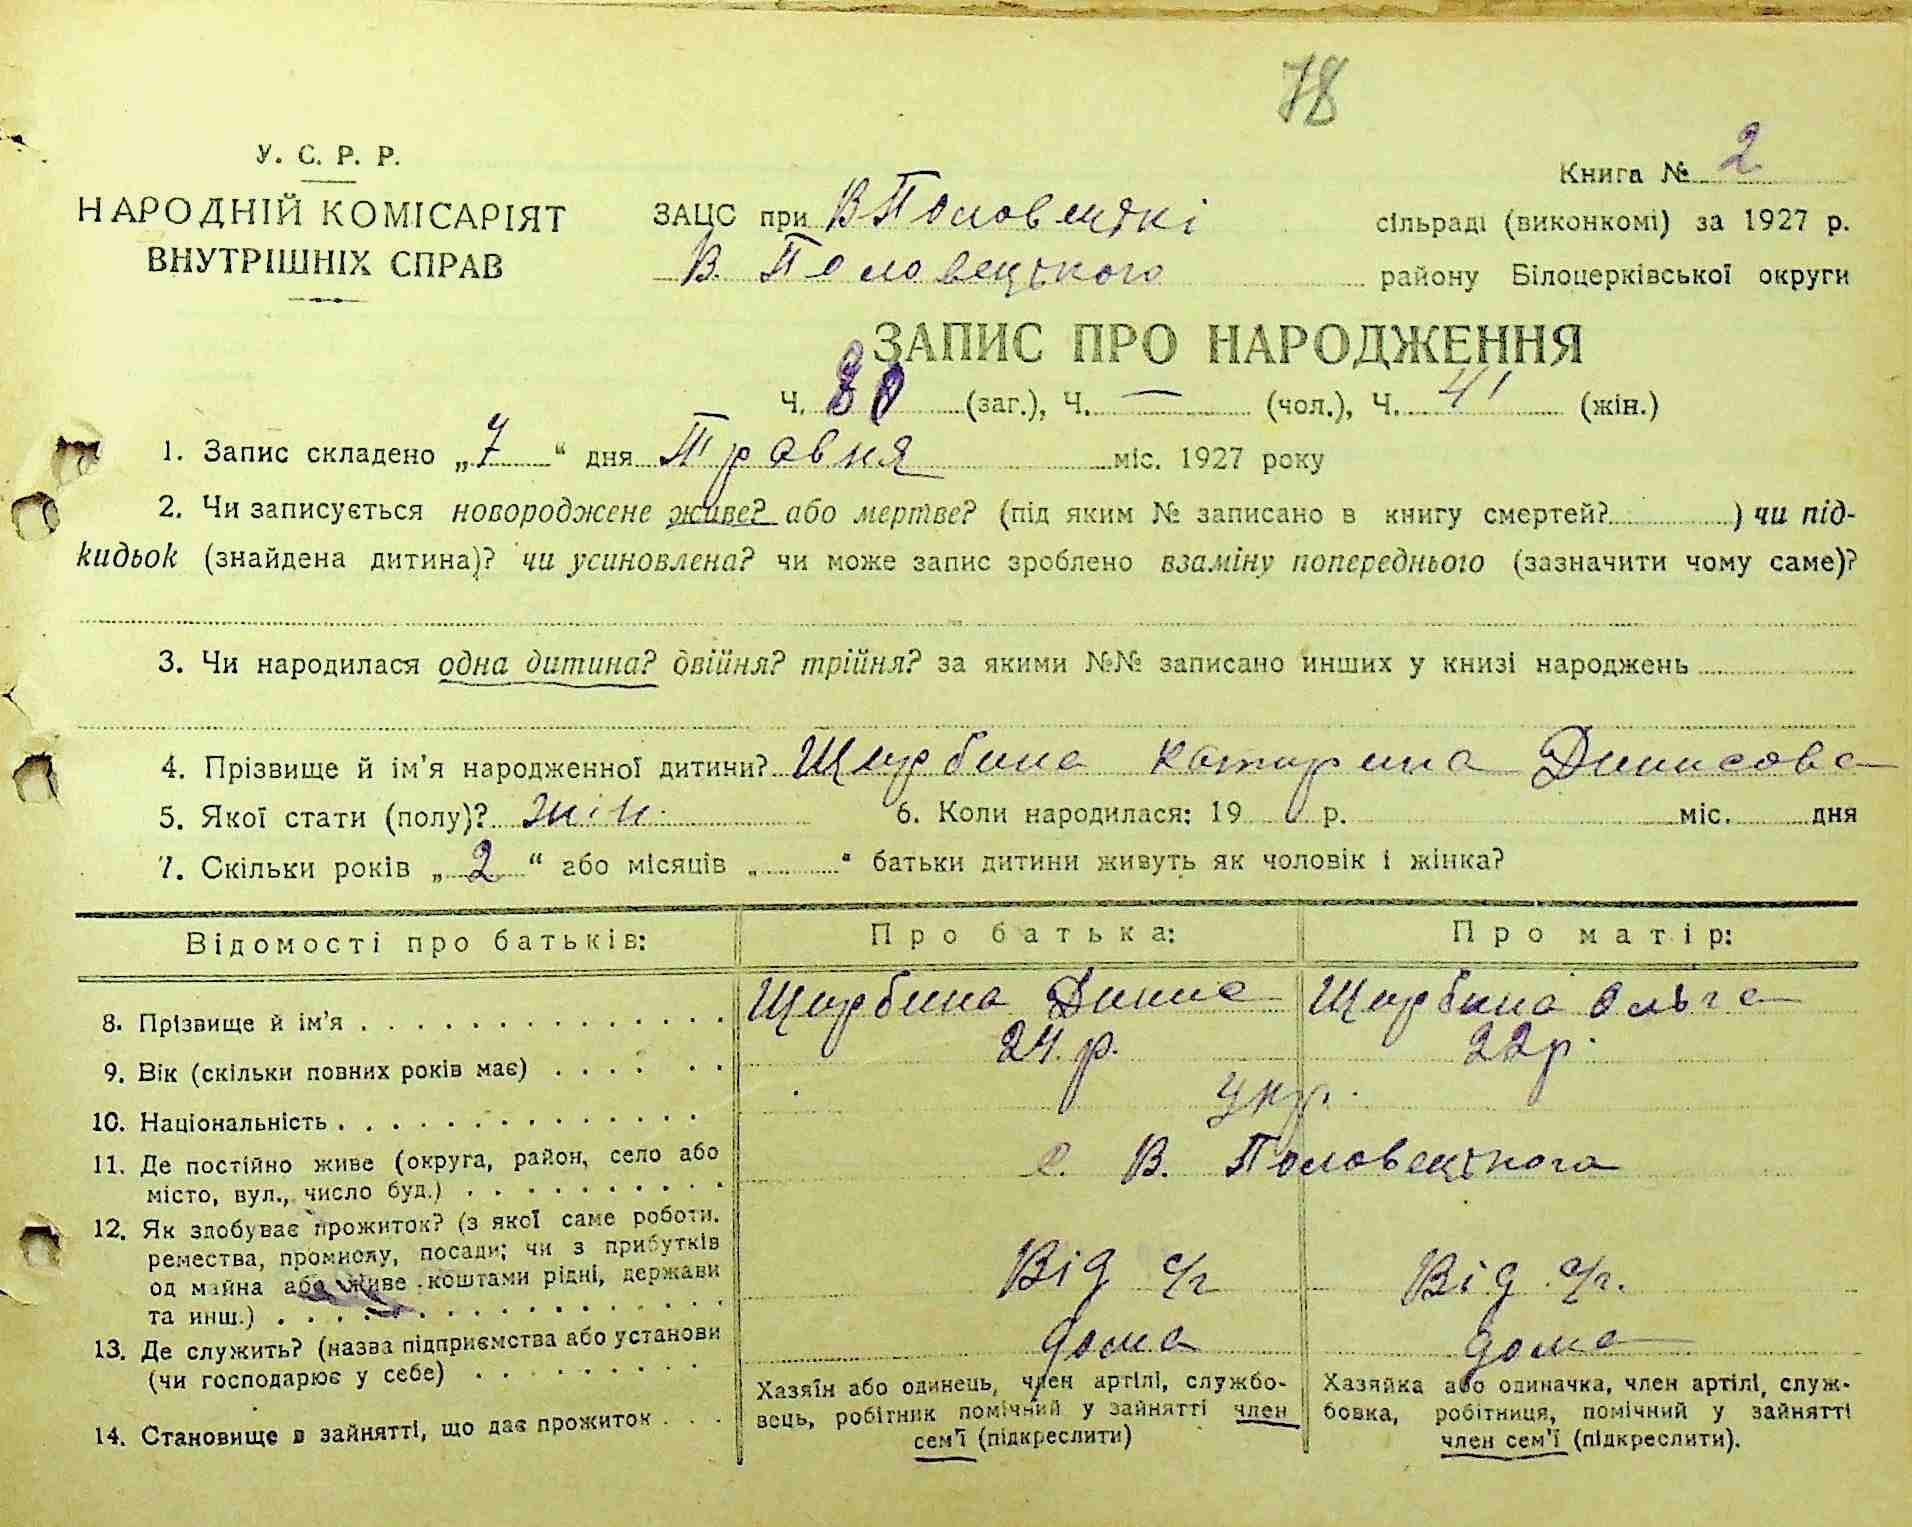 78
У. С. Р. Р.
НАРОДНІЙ КОМІСАРІЯТ
ВНУТРІШНІХ СПРАВ
Книга № 2
ЗАЦС при В Половецькі сільраді (виконкомі) за 1927 р.
В. Половецького району Білоцерківської округи
ЗАПИС ПРО НАРОДЖЕННЯ
Ч. (заг.), Ч. — (чол.), Ч. 41 (жін.)
1. Запис складено „7“ дня Травня міс. 1927 року
2. Чи записується новороджене живе? або мертве? (під яким № записано в книгу смертей? ) чи під-
кидьок (знайдена дитина)? чи усиновлена? чи може запис зроблено взаміну попереднього (зазначити чому саме)?
3. Чи народилася одна дитина? двійня? трійня? за якими №№ записано инших у книзі народжень
4. Прізвище й ім'я народженної дитини? Щирбина Катирина Динисова
5. Якої стати (полу)? жін. 6. Коли народилася: 19 р. міс. дня
7. Скільки років „2“ або місяців „ “ батьки дитини живуть як чоловік і жінка?
Відомості про батьків: Про батька: Про матір:
8. Прізвище й ім'я . . . . . . . . . . . . . . Щирбина Динис Щирбина Ольга
9. Вік (скільки повних років має) . . . . . . 24. р. 22 р.
10. Національність . . . . . . . . . . . . . . укр.
11. Де постійно живе (округа, район, село або
місто, вул., число буд.) . . . . . . . . . . с. В. Половецького
12. Як здобуває прожиток? (з якої саме роботи.
ремества, промислу, посади; чи з прибутків
од майна або живе коштами рідні, держави
та инш.) . . . . . . . . . . . . . . Від с/г Від с/г.
13. Де служить? (назва підприємства або установи
(чи господарює у себе) . . . . . . . . дома дома
14. Становище в зайнятті, що дає прожиток . . .
Хазяїн або одинець, член артілі, службо-
вець, робітник помічний у зайнятті член
сем'ї (підкреслити)
Хазяйка або одиначка, член артілі, служ-
бовка, робітниця, помічний у зайнятті
член сем'ї (підкреслити).